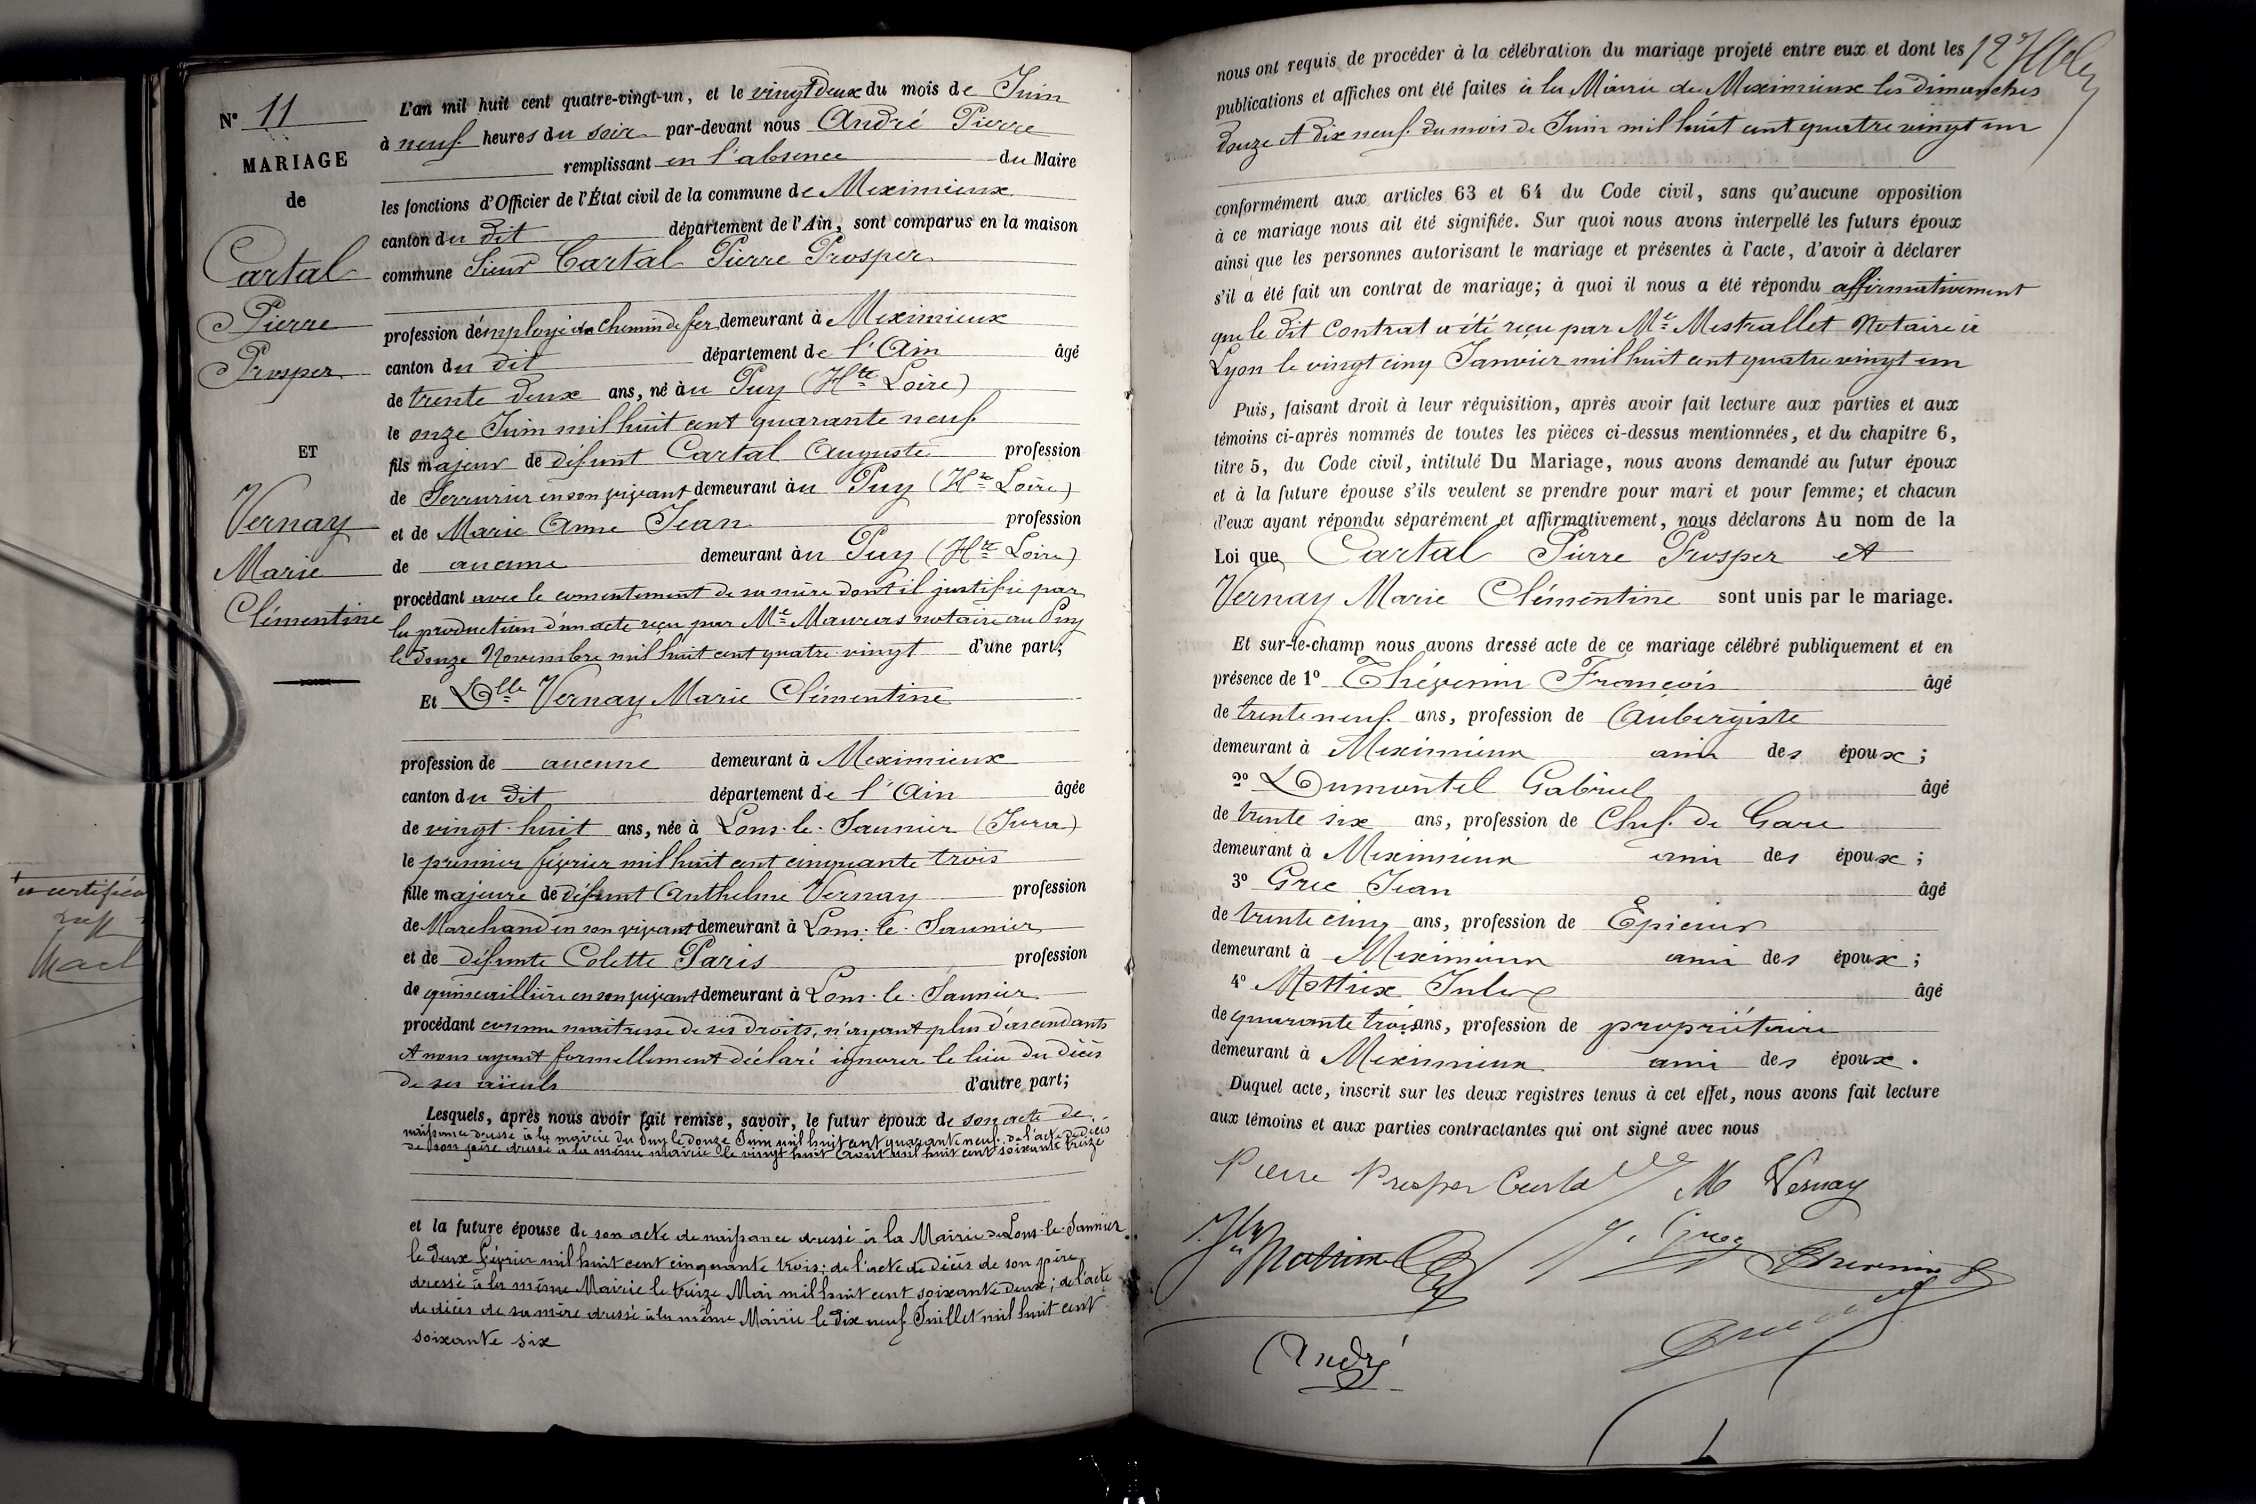 N° 11
MARIAGE
de
Cartal
Pierre
Prosper
ET
Vernay
Marie
Clémentine
L'an mil huit cent quatre-vingt-un, et le vingt deux du mois de Juin
à neuf heures du soir par-devant nous André Pierre
remplissant en l'absence du Maire
les fonctions d'Officier de l'État civil de la commune de Meximieux
canton du dit département de l'Ain, sont comparus en la maison
commune Sieur Cartal Pierre Prosper
profession d'employé de chemin de fer demeurant à Meximieux
canton du dit département de l'Ain âgé
de trente deux ans, né au Puy (Hte Loire)
le onze Juin mil huit cent quarante neuf
fils majeur de défunt Cartal Auguste profession
de Serrurier en son vivant demeurant au Puy (Hte Loire)
et de Marie Anne Jean profession
de aucune demeurant au Puy (Hte Loire)
procédant avec le consentement de sa mère dont il justifie par
la production d'un acte reçu par Me Mauras notaire au Puy
le douze Novembre mil huit cent quatre vingt d'une part;
Et Dlle Vernay Marie Clémentine
profession de aucune demeurant à Meximieux
canton du dit département de l'Ain âgée
de vingt-huit ans, née à Lons-le-Saunier (Jura)
le premier février mil huit cent cinquante trois
fille majeure de défunt Anthelme Vernay profession
de Marchand en son vivant demeurant à Lons-le-Saunier
et de défunte Colette Paris profession
de quincaillière en son vivant demeurant à Lons-le-Saunier
procédant comme maitresse de ses droits, n'ayant plus d'ascendants
et nous ayant formellement déclaré ignorer le lieu du décès
de ses aïeuls d'autre part;
Lesquels, après nous avoir fait remise, savoir, le futur époux de son acte de
naissance dressé à la mairie du Puy le douze Juin mil huit cent quarante neuf, de l'acte de décès
de son père dressé à la même mairie le vingt huit Aout mil huit cent soixante treize
et la future épouse de son acte de naissance dressé à la Mairie de Lons-le-Saunier
le deux Février mil huit cent cinquante trois; de l'acte de décès de son père
dressé à la même Mairie le treize Mai mil huit cent soixante deux; de l'acte
de décès de sa mère dressé à la même Mairie le dix neuf Juillet mil huit cent
soixante six
nous ont requis de procéder à la célébration du mariage projeté entre eux et dont les
publications et affiches ont été faites à la Mairie de Meximieux les dimanches
douze et dix neuf du mois de Juin mil huit cent quatre vingt un
conformément aux articles 63 et 64 du Code civil, sans qu'aucune opposition
à ce mariage nous ait été signifiée. Sur quoi nous avons interpellé les futurs époux
ainsi que les personnes autorisant le mariage et présentes à l'acte, d'avoir à déclarer
s'il a été fait un contrat de mariage; à quoi il nous a été répondu affirmativement
que le dit contrat a été reçu par Me Mestrallet Notaire à
Lyon le vingt cinq Janvier mil huit cent quatre vingt un
Puis, faisant droit à leur réquisition, après avoir fait lecture aux parties et aux
témoins ci-après nommés de toutes les pièces ci-dessus mentionnées, et du chapitre 6,
titre 5, du Code civil, intitulé Du Mariage, nous avons demandé au futur époux
et à la future épouse s'ils veulent se prendre pour mari et pour femme; et chacun
d'eux ayant répondu séparément et affirmativement, nous déclarons Au nom de la
Loi que Cartal Pierre Prosper et
Vernay Marie Clémentine sont unis par le mariage.
Et sur-le-champ nous avons dressé acte de ce mariage célébré publiquement et en
présence de 1° Thévenin François âgé
de trente neuf ans, profession de Aubergiste
demeurant à Meximieux ami des époux;
2° Dumontel Gabriel âgé
de trente six ans, profession de Chef de Gare
demeurant à Meximieux ami des époux;
3° Grec Jean âgé
de trente cinq ans, profession de Epicier
demeurant à Meximieux ami des époux;
4° Mottrix Jules âgé
de quarante trois ans, profession de propriétaire
demeurant à Meximieux ami des époux.
Duquel acte, inscrit sur les deux registres tenus à cet effet, nous avons fait lecture
aux témoins et aux parties contractantes qui ont signé avec nous
Pierre Prosper Cartal M Vernay
André